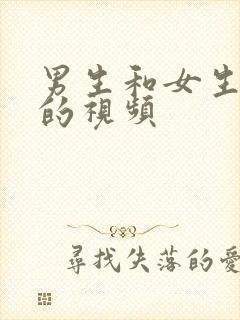 男生和女生
的視頻
尋找失落的愛